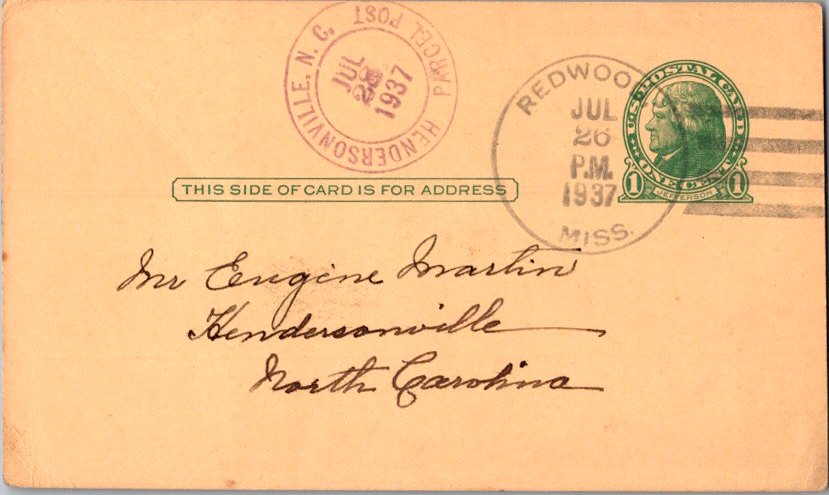 HENDERSONVILLE, N. C.
PARCEL POST
JUL
28
1937
REDWOO
JUL
26
P.M.
1937
MISS.
U.S. POSTAL CARD
1 ONE CENT 1
JEFFERSON
THIS SIDE OF CARD IS FOR ADDRESS
Mr Eugine Martin
Hendersonville
North Carolina